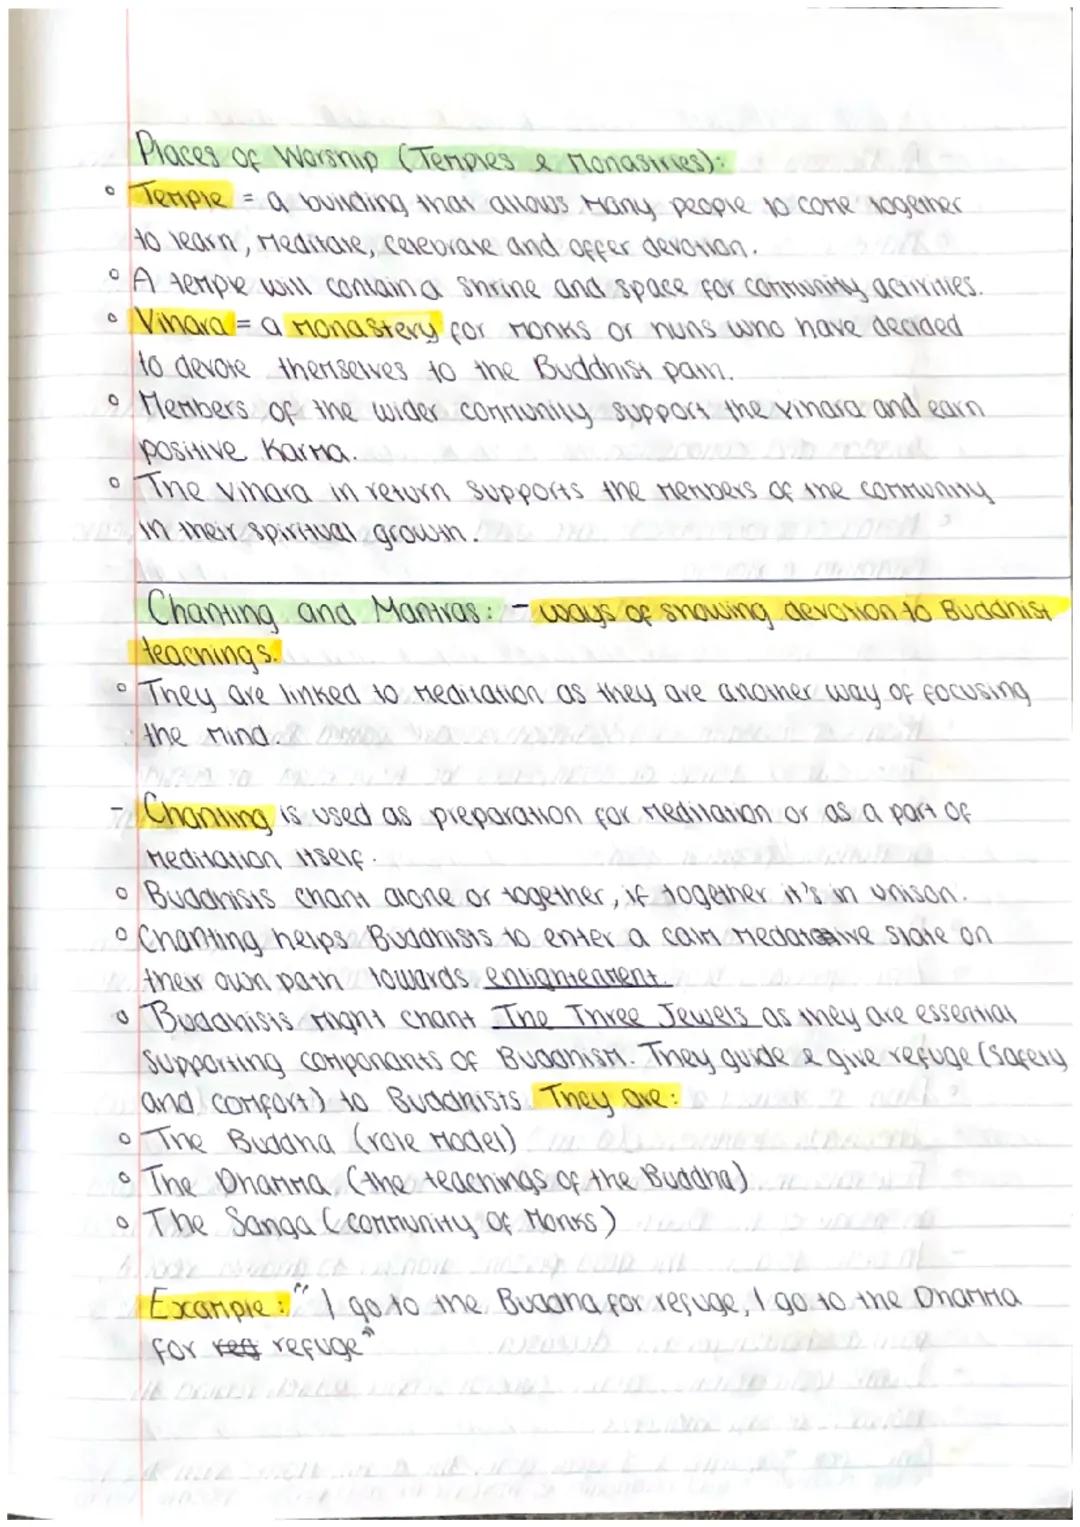 Places of Worship (Temples & Monastries):
° Temple = a building that allows many people to come together
to learn, meditate, celebrate and offer devotion.
° A temple will contain a shrine and space for community activities.
° Vihara = a monastery for monks or nuns who have decided
to devote themselves to the Buddhist path.
° Members of the wider community support the vihara and earn
positive Karma.
° The vihara in return supports the members of the community
in their spiritual growth.
Chanting and Mantras: - ways of showing devotion to Buddhist
teachings.
° They are linked to meditation as they are another way of focusing
the mind.
- Chanting is used as preparation for meditation or as a part of
meditation itself.
° Buddhists chant alone or together, if together it's in unison.
° Chanting helps Buddhists to enter a calm medatative state on
their own path towards enlightenment.
° Buddhists might chant The Three Jewels as they are essential
supporting componants of Buddhism. They guide & give refuge (safety
and comfort) to Buddhists. They are:
° The Buddha (role model)
° The Dharma (the teachings of the Buddha)
° The Sanga (community of monks)
Example: "I go to the Buddha for refuge, I go to the Dharma
for refuge"